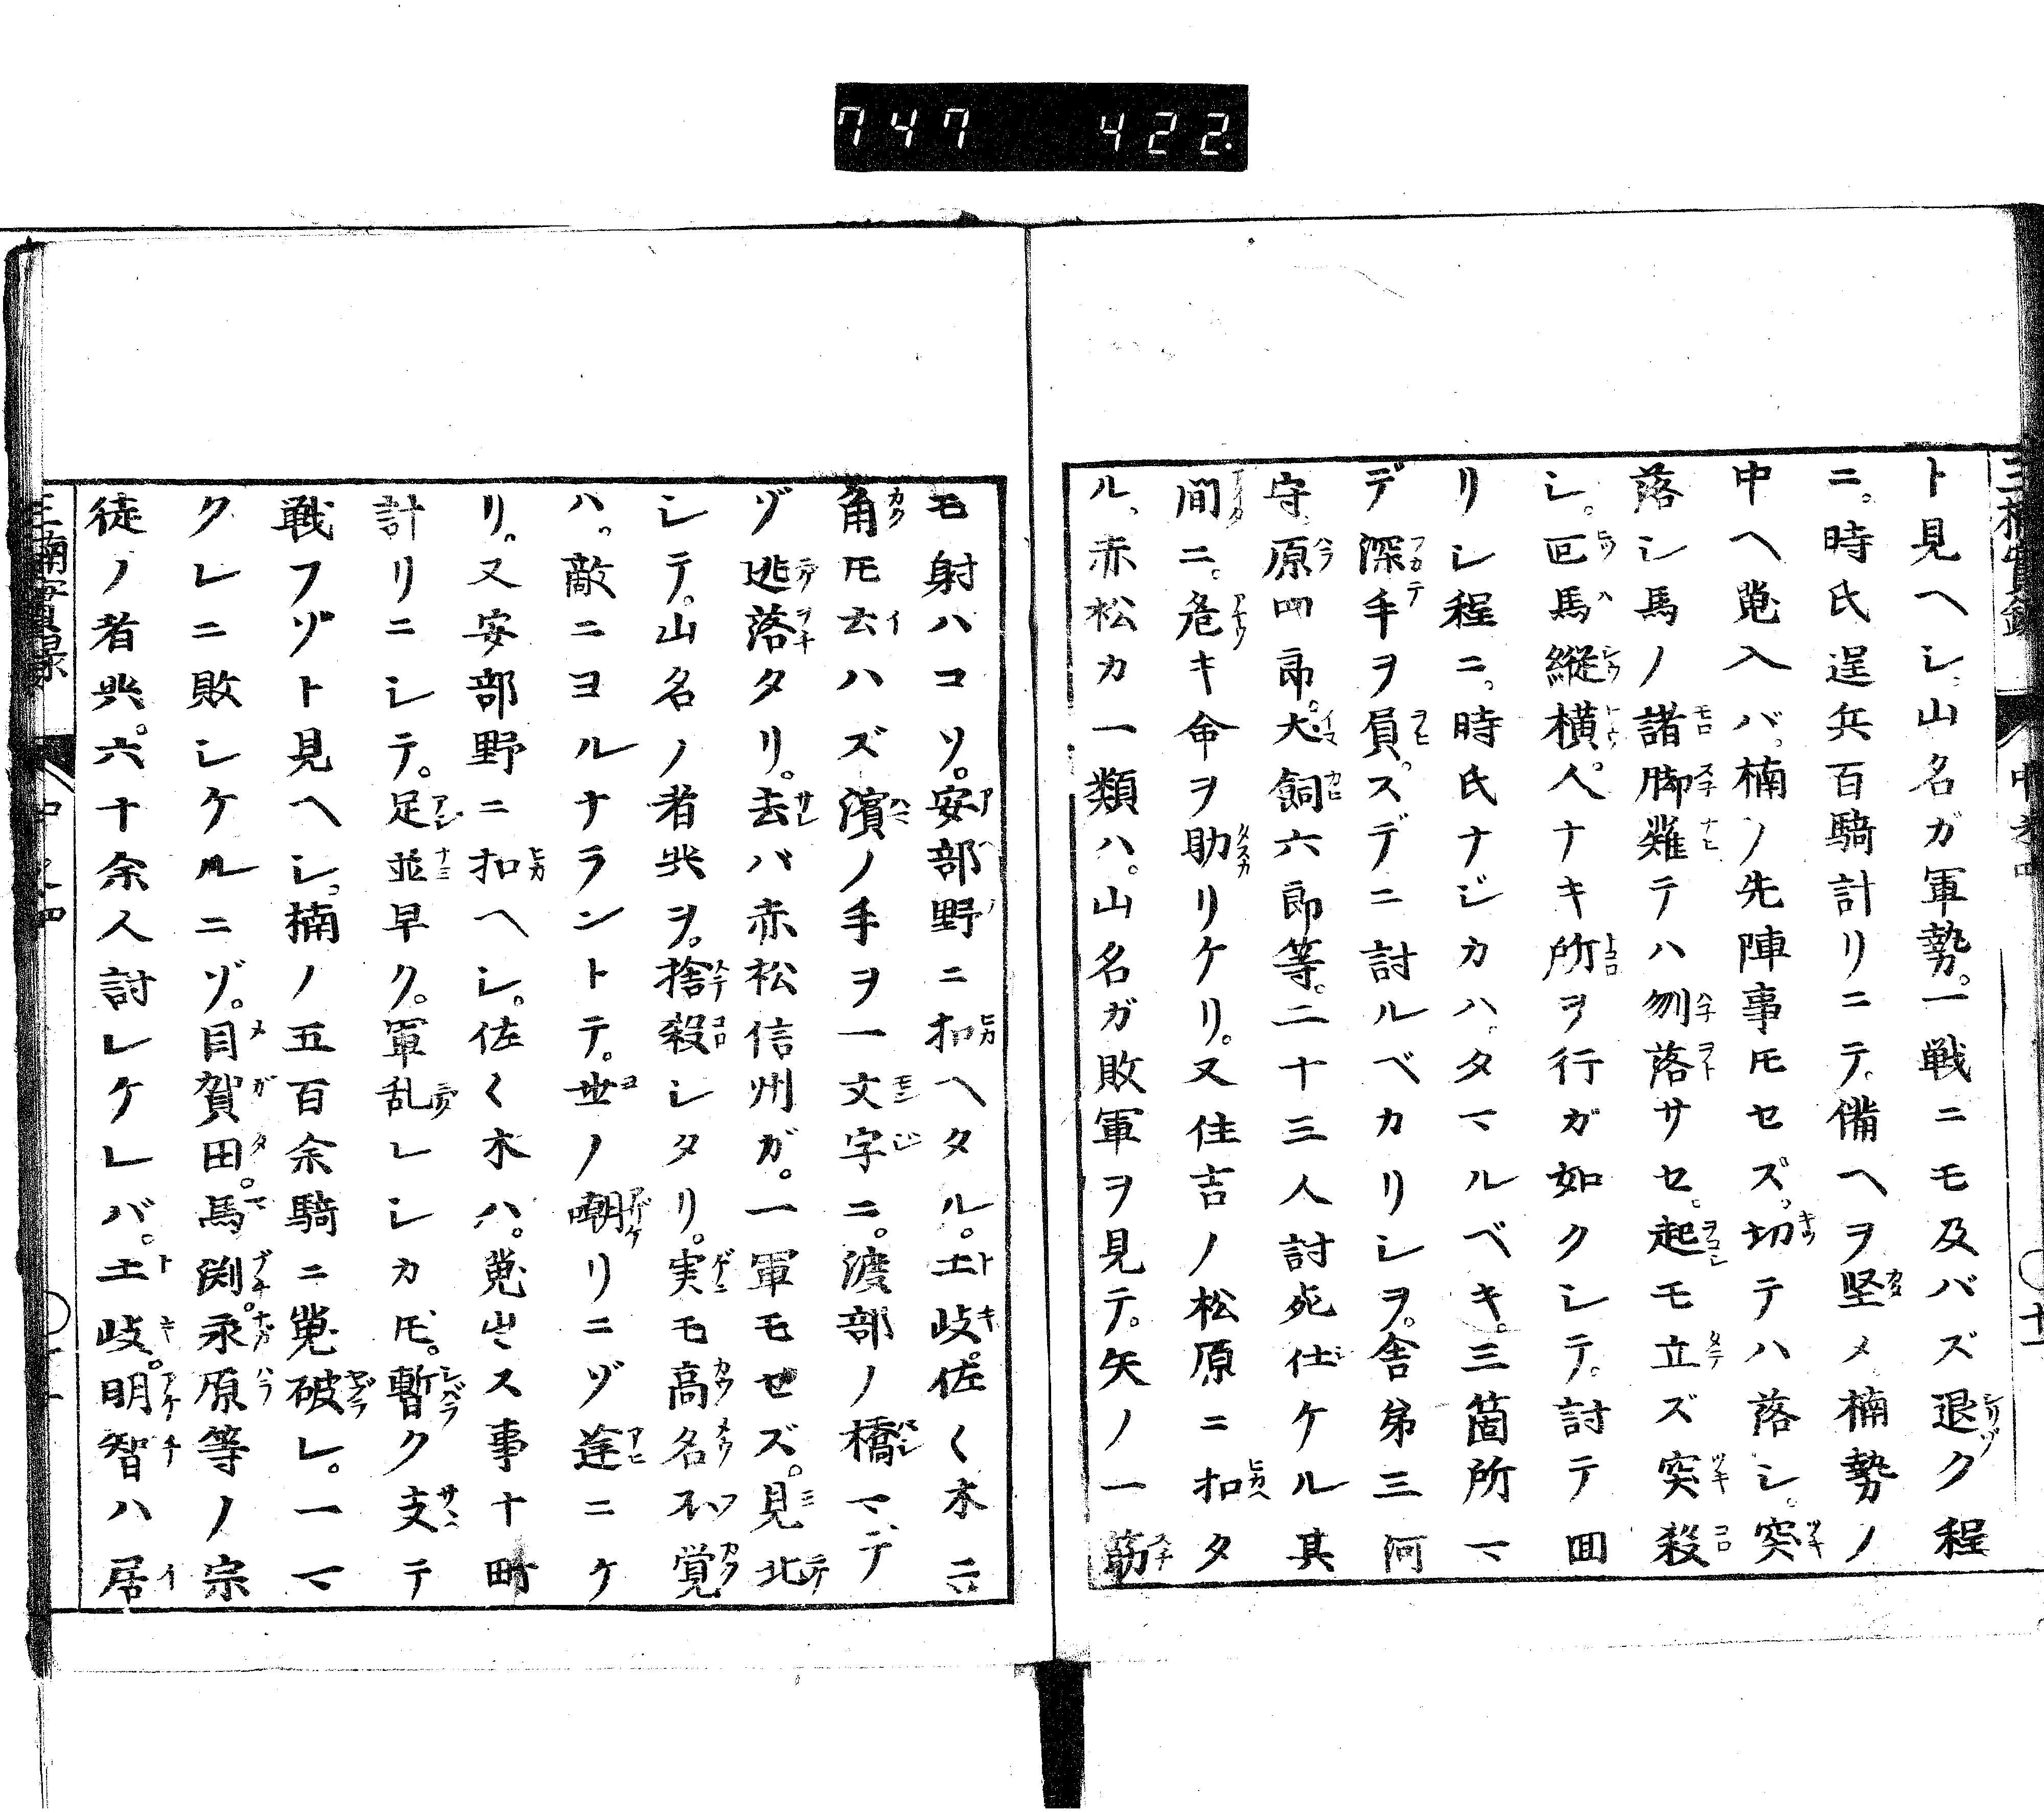 747 422.
ト見ヘシ。山名ガ軍勢。一戦ニモ及バズ退ク程
ニ。時氏逞兵百騎計リニテ。備ヘヲ堅メ楠勢ノ
中ヘ蒐入バ。楠ノ先陣事𪜈セズ。切テハ落シ。突
落シ馬ノ諸脚薙テハ刎落サセ。起モ立ズ突殺
シ。叵馬縦横。人ナキ所ヲ行ガ如クシテ。討テ回
リシ程ニ。時氏ナジカハ。タマルベキ。三箇所マ
デ深手ヲ負。スデニ討ルベカリシヲ。舎弟三河
守。原四郎。犬飼六郎等。二十三人討死仕ケル其
間ニ。危キ命ヲ助リケリ。又住吉ノ松原ニ扣タ
ル。赤松カ一類ハ。山名ガ敗軍ヲ見テ。矢ノ一筋
モ射ハコソ。安部野ニ扣ヘタル。土岐。佐〱木六
角𪜈云ハズ濱ノ手ヲ一文字ニ。渡部ノ橋マデ
ゾ逃落タリ。去バ赤松信州ガ。一軍モセズ。見北
シテ。山名ノ者共ヲ。捨殺シタリ。実モ高名不覚
ハ。敵ニヨルナラントテ。世ノ嘲リニゾ逢ニケ
リ。又安部野ニ扣ヘシ。佐〱木ハ。蒐出ス事十町
計リニシテ。足並早ク。軍乱レシカ𪜈。暫ク支テ
戦フゾト見ヘシ。楠ノ五百余騎ニ蒐破レ。一マ
クレニ敗シケルニゾ。目賀田。馬渕。永原等ノ宗
徒ノ者共。六十余人討レケレバ。土岐。明智ハ居